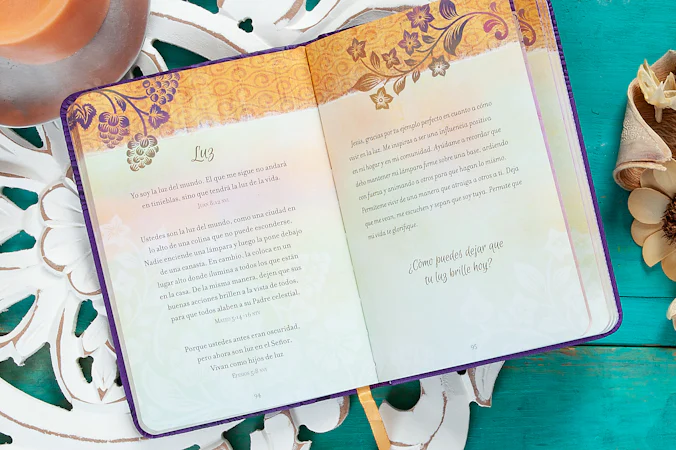 Luz
Yo soy la luz del mundo. El que me sigue no andará
en tinieblas, sino que tendrá la luz de la vida.
Juan 8:12 NVI
Ustedes son la luz del mundo, como una ciudad en
lo alto de una colina que no puede esconderse.
Nadie enciende una lámpara y luego la pone debajo
de una canasta. En cambio, la coloca en un
lugar alto donde ilumina a todos los que están
en la casa. De la misma manera, dejen que sus
buenas acciones brillen a la vista de todos,
para que todos alaben a su Padre celestial.
Mateo 5:14-16 NTV
Porque ustedes antes eran oscuridad,
pero ahora son luz en el Señor.
Vivan como hijos de luz
Efesios 5:8 NVI
94
Jesús, gracias por tu ejemplo perfecto en cuanto a cómo
vivir en la luz. Me inspiras a ser una influencia positiva
en mi hogar y en mi comunidad. Ayúdame a recordar que
debo mantener mi lámpara firme sobre una base, ardiendo
con fuerza y animando a otros para que hagan lo mismo.
Permíteme vivir de una manera que atraiga a otros a ti. Deja
que me vean, me escuchen y sepan que soy tuya. Permite que
mi vida te glorifique.
¿Cómo puedes dejar que
tu luz brille hoy?
95